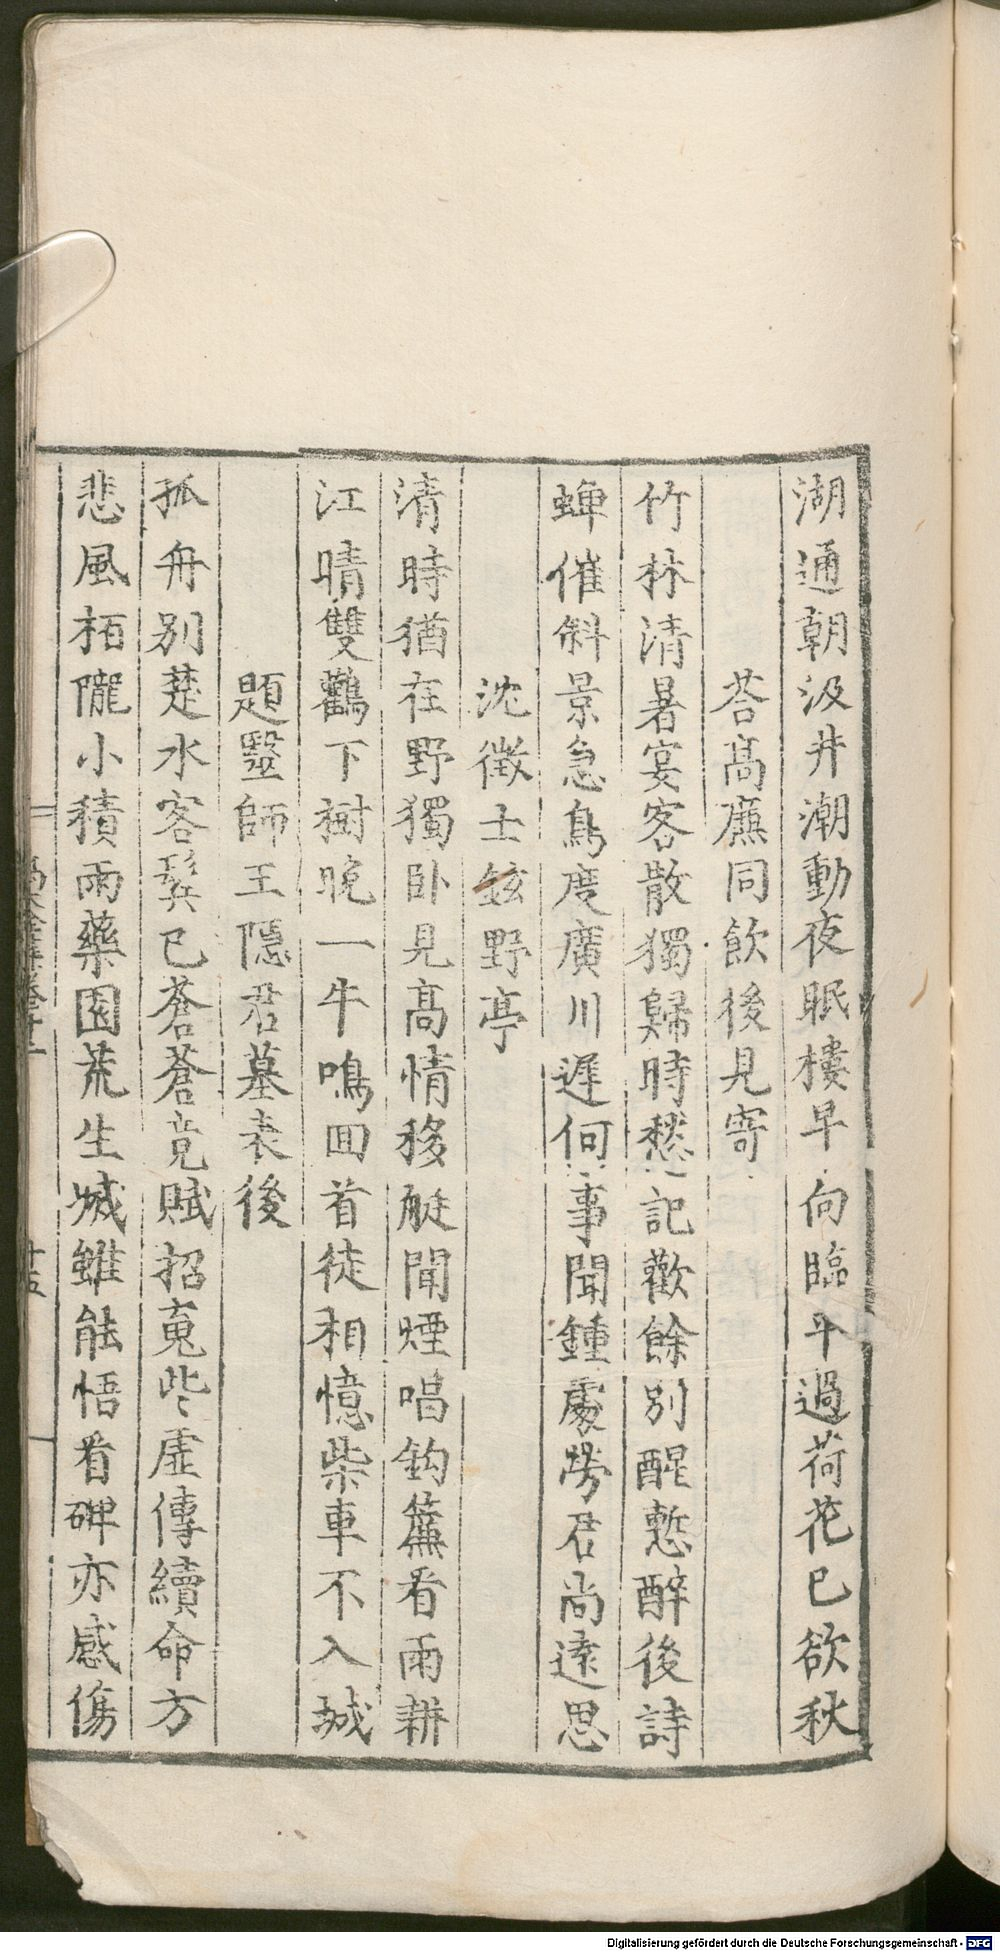 湖通朝汲井潮動夜眠樓早向臨平過荷花已欲秋
荅高廌同飲後見寄
竹林清暑宴客散獨歸時愁記歡餘別醒慙醉後詩
蟬催斜景急鳥度廣川遲何事聞鍾處勞君尚遠思
沈徵士鉉野亭
清時猶在野獨卧見高情移艇聞煙唱鈎簾看雨耕
江晴雙鸛下樹晚一牛鳴回首徒相憶柴車不入城
題毉師王隱君墓表後
孤舟別楚水客鬓已蒼蒼竟賦招䰟些虛傳續命方
悲風栢隴小積雨藥園荒生滅雖能悟看碑亦感傷
十五
Digitalisierung gefördert durch die Deutsche Forschungsgemeinschaft - DFG